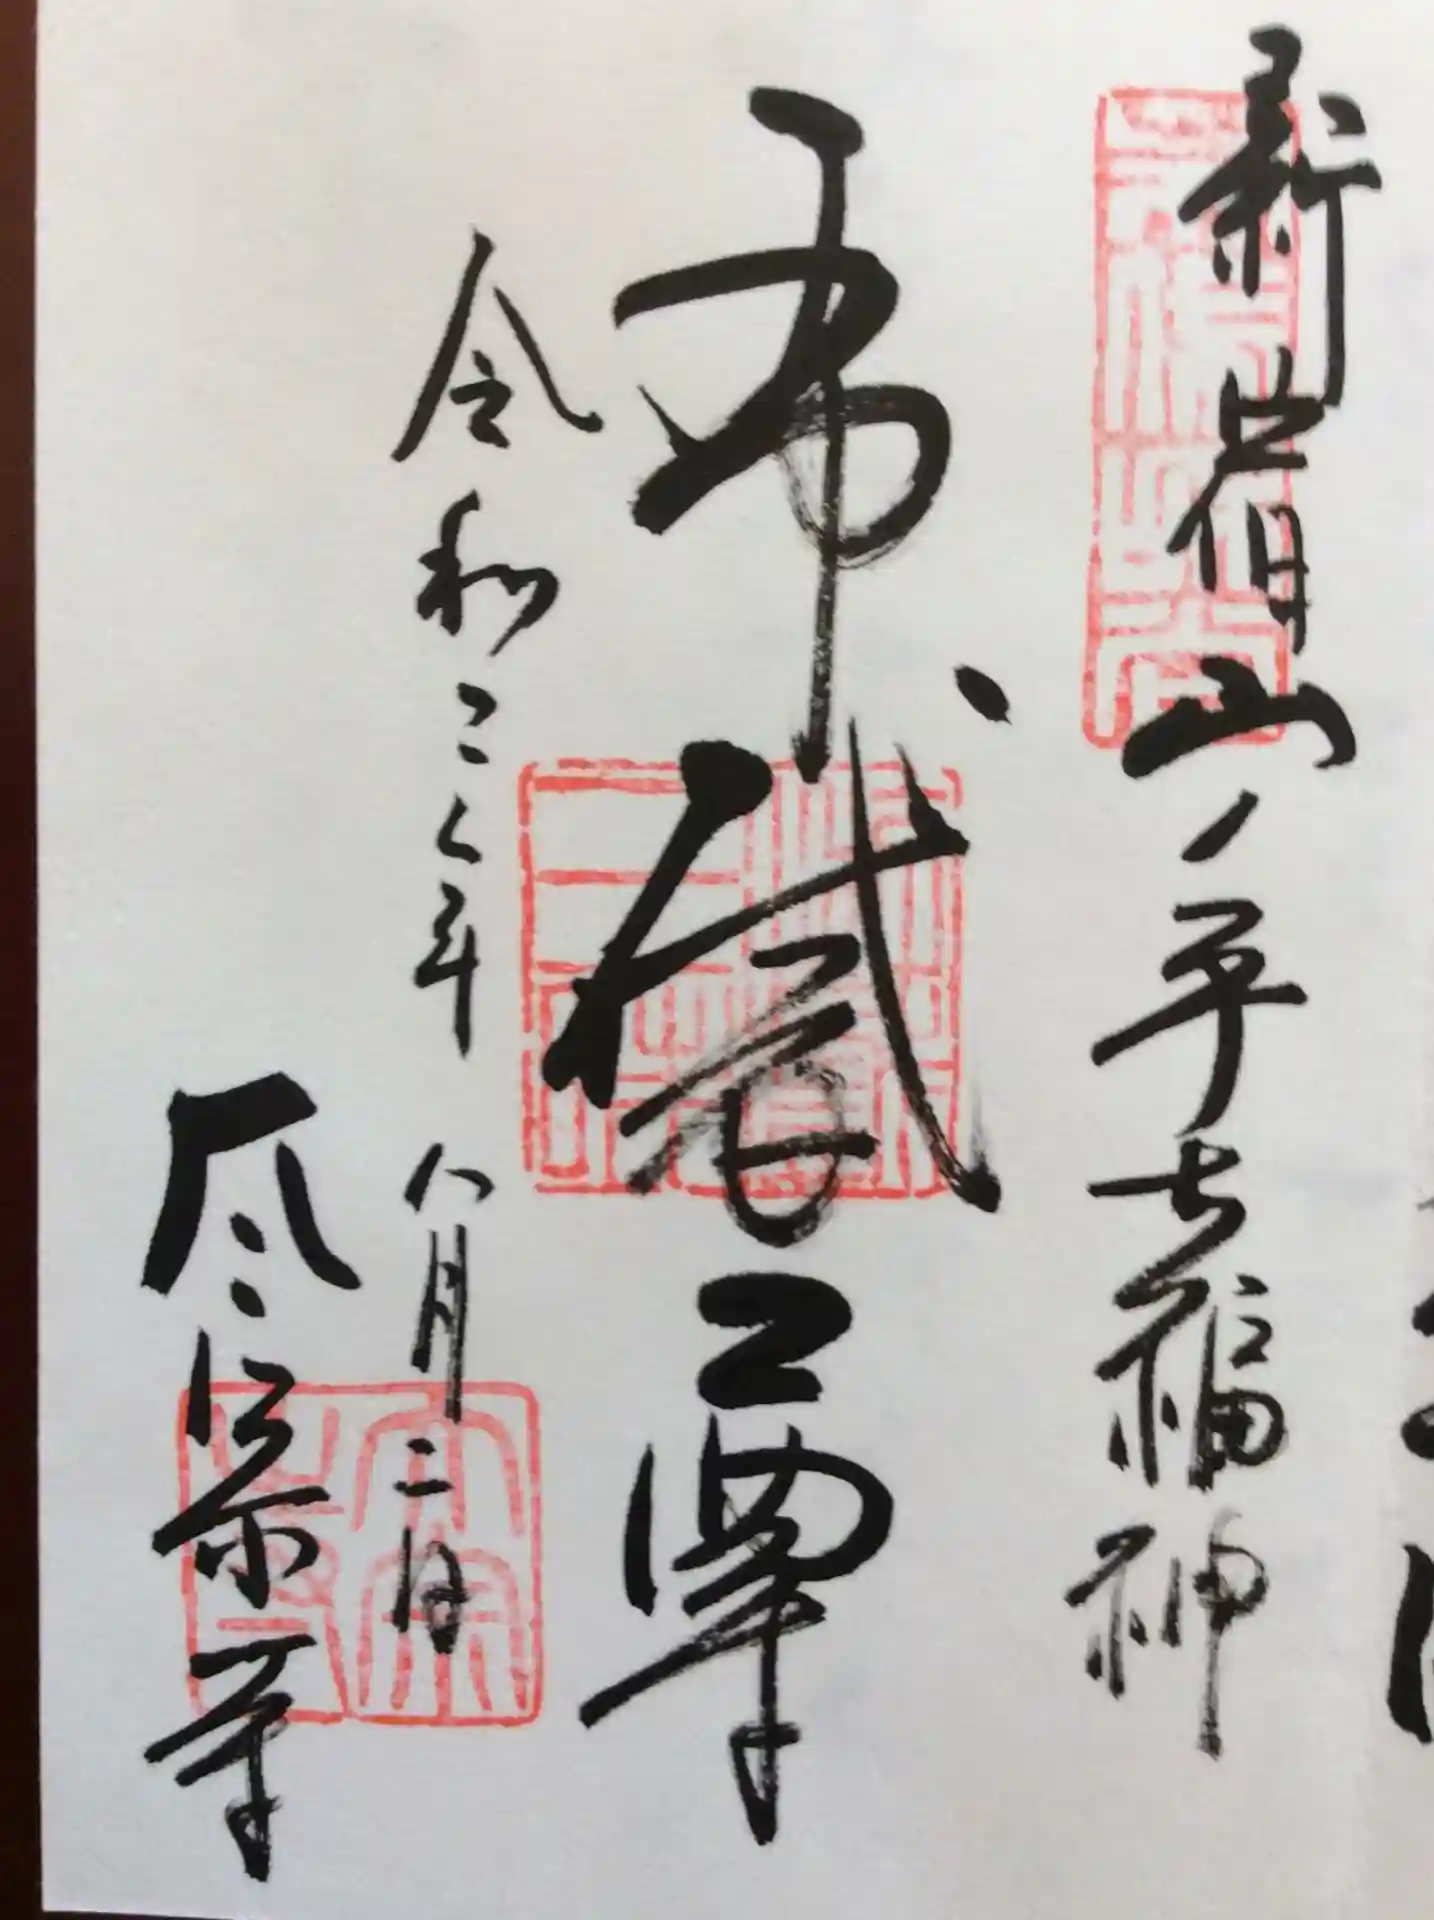 新宿山ノ手七福神
布袋尊
令和 年 八月二日
太宗寺